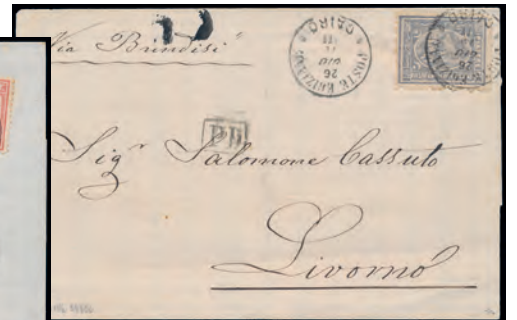 "Via Brindisi"
POSTE EGIZIANE
26
CAIRO
P.D.
Sigr Salomone Cassuto
Livorno